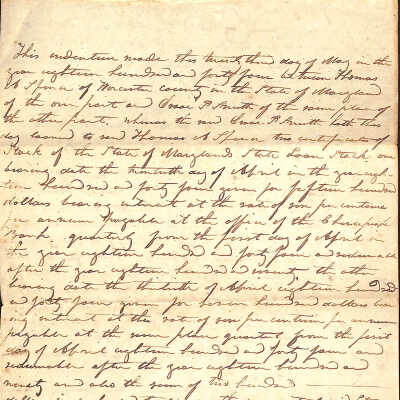 This indenture made this twenty third day of May in the
year eighteen hundred and forty four between Thomas
A Spence of Worcester county in the State of Maryland
of the one part and Isaac P. Smith of the same place of
the other part, whereas the said Isaac P. Smith hath this
day loaned to said Thomas A Spence two certificates of
Stock of the State of Maryland State Loan Stock, one
bearing date the day of April in the year eigh-
teen hundred and forty four given for fifteen hundred
dollars bearing interest at the rate of six per centum
per annum payable at the office of the Chesapeake
Bank quarterly from the first day of April in
the year eighteen hundred and forty four and redeemable
after the year eighteen hundred and ninety the other
bearing date the of April eighteen hundred
and forty four given for seven hundred dollars bear
ing interest at the rate of six per centum per annum
payable at the same place quarterly from the first
day of April eighteen hundred and forty four and
redeemable after the year eighteen hundred and
ninety and also the sum of two hundred